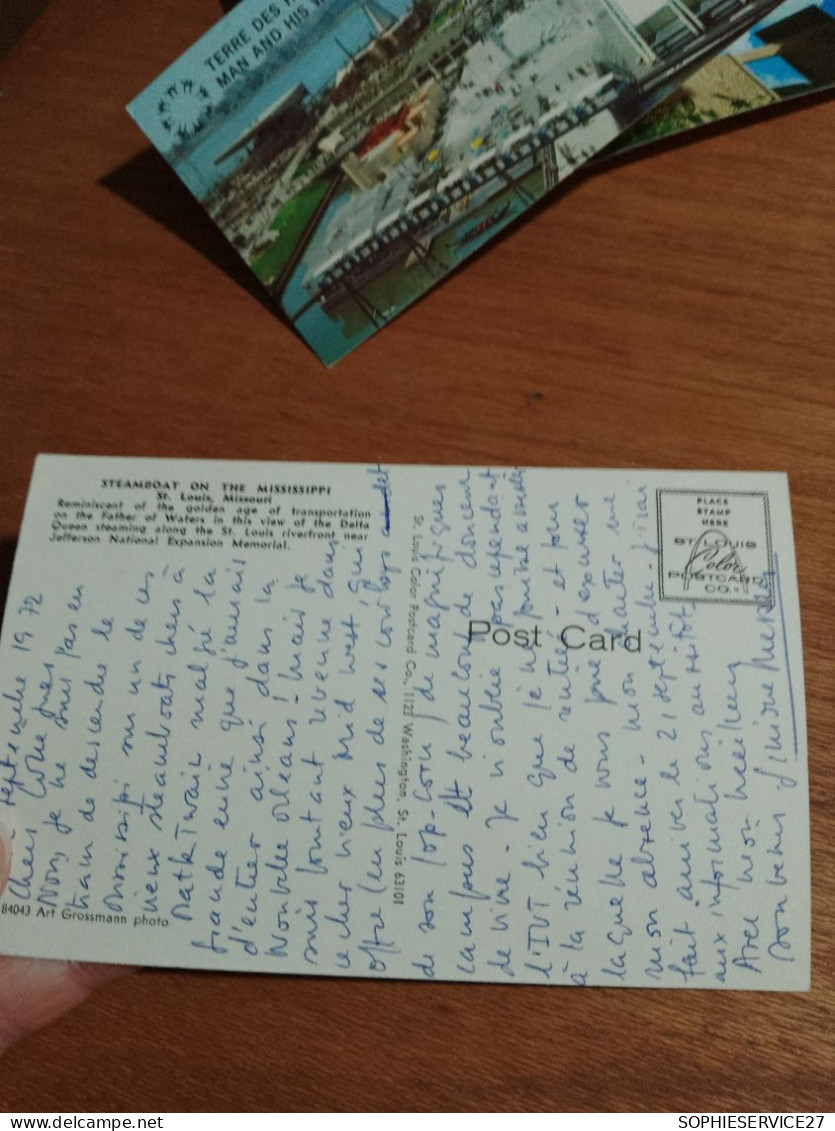 TERRE DES
MAN AND HIS
STEAMBOAT ON THE MISSISSIPPI
St. Louis, Missouri
Reminiscent of the golden age of transportation
on the Father of Waters in this view of the Delta
Queen steaming along the St. Louis riverfront near
Jefferson National Expansion Memorial.
septembre 1972
Chers Collègues
Non, je ne suis pas en
train de descendre le
Mississipi sur un de ces
vieux steamboats chers à
Mark Twain malgré la
grande envie que j'aurais
d'entrer ainsi dans la
Nouvelle Orléans! Mais je
suis pourtant revenue dans
ce cher vieux Mid West qui
offre (en plus de ses cow boys et
de son pop-corn) de magnifiques
campus et beaucoup de douceur
de vivre. Je n'oublie pas cependant
l'IUT bien que je ne puisse assister
à la réunion de rentrée - et pour
laquelle je vous prie d'excuser
mon absence - mon charter me
fait arriver le 21 septembre. J'irai
aux informations aussitôt.
Avec mon meilleur
souvenir
84043 Art Grossmann photo
St. Louis Color Postcard Co., 1123 Washington, St. Louis 63101
Post Card
PLACE
STAMP
HERE
ST. LOUIS
Color
POSTCARD
CO.
SOPHIESERVICE27